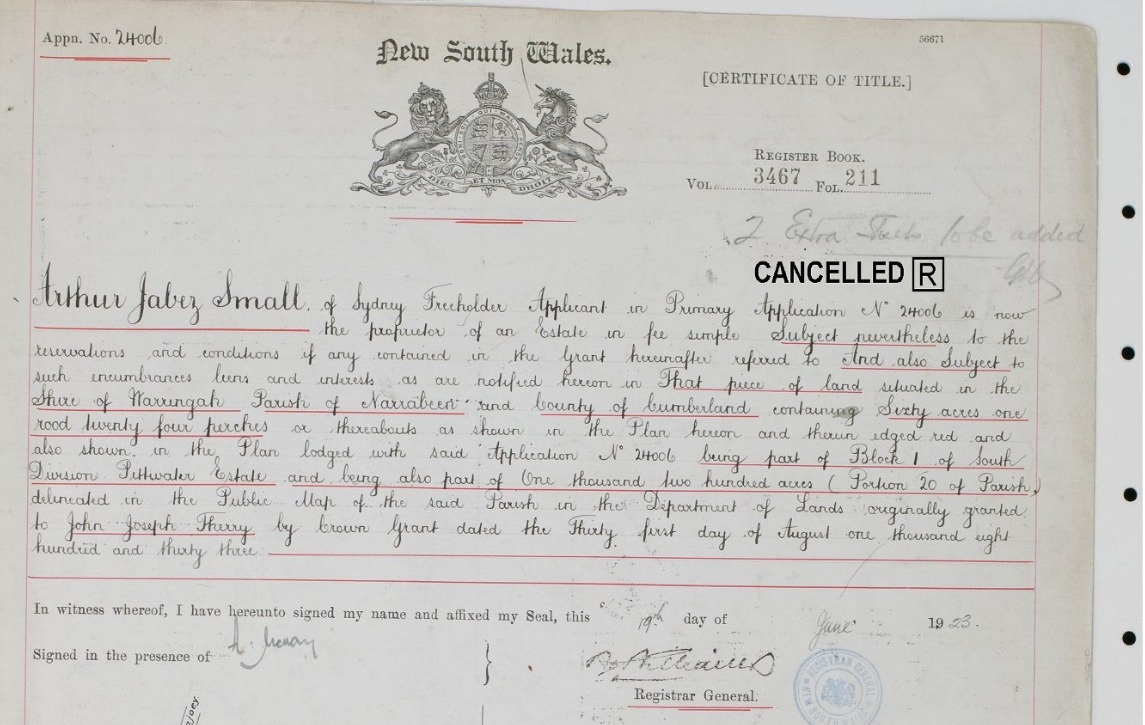 Appn. No. 24006
56671
New South Wales.
[CERTIFICATE OF TITLE.]
DIEU ET MON DROIT
REGISTER BOOK.
VOL. 3467 FOL. 211
2 Extra to be added
CANCELLED R
Arthur Jabez Small, of Sydney Freeholder Applicant in Primary Application No 24006 is now
the proprietor of an Estate in fee simple Subject nevertheless to the
reservations and conditions if any contained in the Grant hereinafter referred to And also Subject to
such encumbrances liens and interests as are notified hereon in That piece of land situated in the
Shire of Warringah Parish of Narrabeen and County of Cumberland containing Sixty acres one
rood twenty four perches or thereabouts as shown in the Plan hereon and therein edged red and
also shown in the Plan lodged with said Application No 24006 being part of Block 1 of South
Division Pittwater Estate and being also part of One thousand two hundred acres (Portion 20 of Parish)
delineated in the Public Map of the said Parish in the Department of Lands originally granted
to John Joseph Therry by Crown Grant dated the Thirty first day of August one thousand eight
hundred and thirty three
In witness whereof, I have hereunto signed my name and affixed my Seal, this 19th day of June 1923.
Signed in the presence of
Registrar General.
REGISTRAR GENERAL